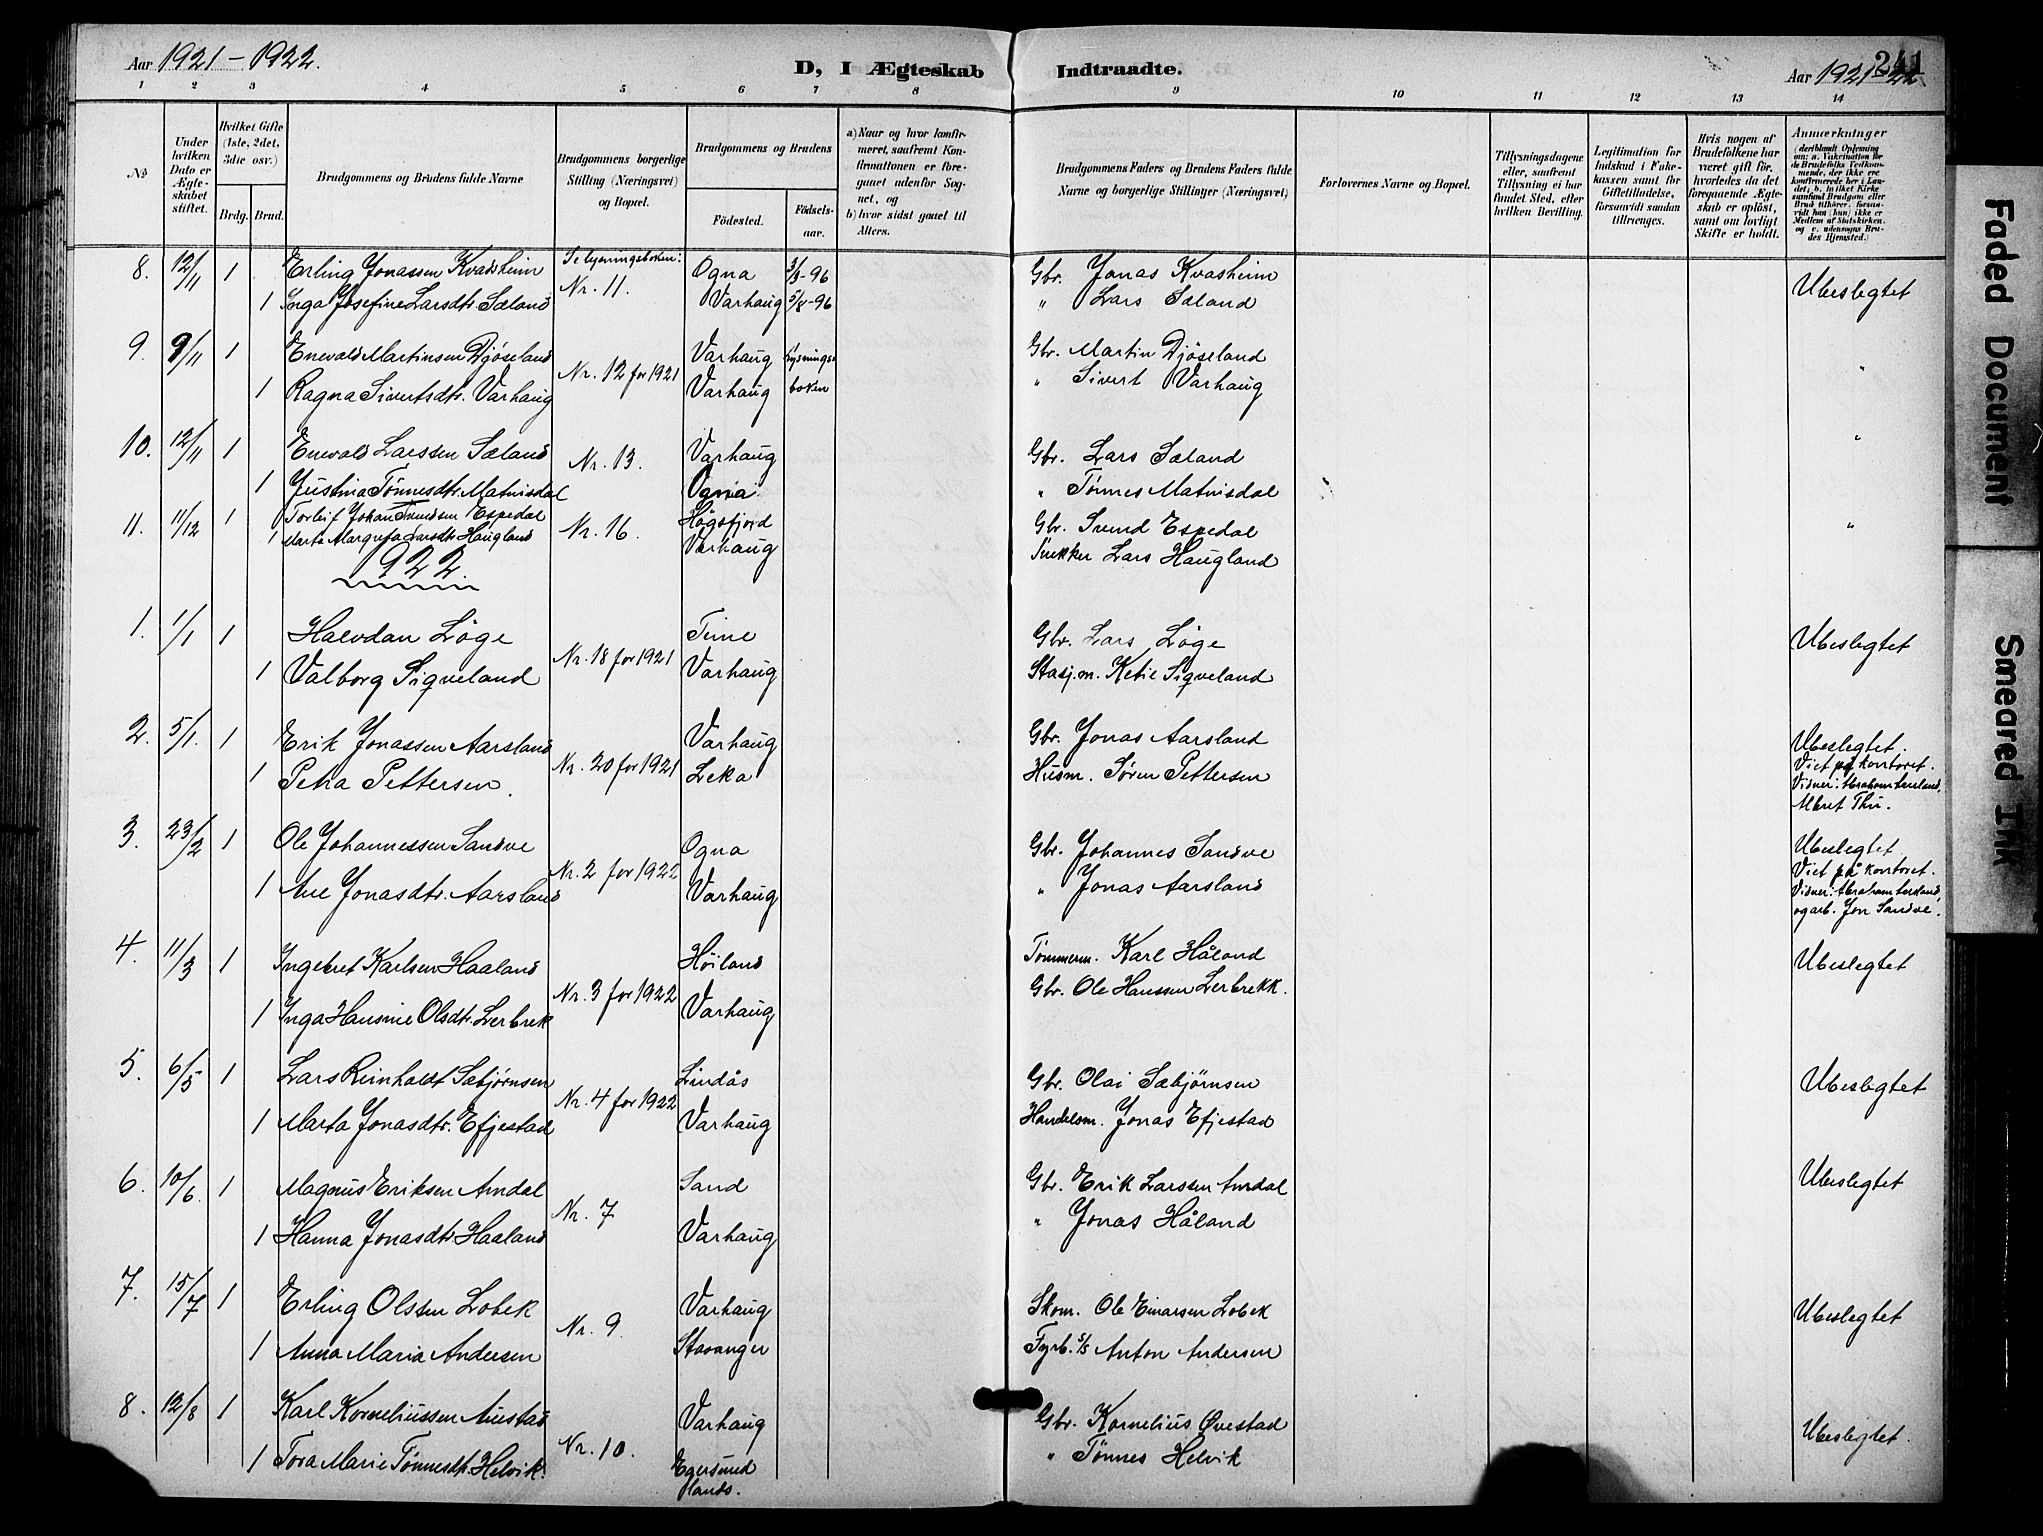 Aar 1921-1922.
D, I Ægteskab Indtraadte.
Aar 1921-22
241
1 2 3 4 5 6 7 8 9 10 11 12 13 14
No
Under hvilken Dato er Ægteskabet stiftet.
Hvilket Gifte (1ste, 2det, 3die osv.)
Brdg. Brud.
Brudgommens og Brudens fulde Navne
Brudgommens borgerlige Stilling (Næringsvei) og Bopæl.
Brudgommens og Brudens
Fødested. Fødselsaar.
a) Naar og hvor konfirmeret, saafremt Konfirmationen er foregaaet udenfor Sognet, og
b) hvor sidst gaaet til Alters.
Brudgommens Faders og Brudens Faders fulde Navne og borgerlige Stillinger (Næringsvei)
Forlovernes Navne og Bopæl.
Tillysningsdagene eller, saafremt Tillysning ei har fundet Sted, efter hvilken Bevilling.
Legitimation for Indskud i Enkekassen samt for Giftetilladelse, forsaavidt saadan tiltrenges.
Hvis nogen af Brudefolkene har været gift før, hvorledes da det foregaaende Ægteskab er opløst, samt om lovligt Skifte er holdt.
Anmærkninger
8. 12/11 1 Erling Jonassen Kvadsheim Se lysningsboken: Ogna 3/3-96 Gbr. Jonas Kvasheim Ubeslegtet
1 Inga Josefine Larsdtr. Sæland Nr. 11. Varhaug 5/8-96 " Lars Sæland
9. 9/11 1 Enevald Martinsen Djøseland Varhaug lysnings Gbr. Martin Djøseland "
1 Ragna Sivertsdtr. Varhaug Nr. 12 for 1921 Varhaug boken " Sivert Varhaug
10. 12/11 1 Enevald Larssen Sæland Nr. 13. Varhaug Gbr. Lars Sæland "
1 Justina Tønnesdtr. Matnisdal Ogna " Tønnes Matnisdal
11. 11/12 1 Torleif Johan Svendsen Espedal Nr. 16. Høgsfjord Gbr. Svend Espedal "
1 Marta Margreta Larsdtr. Haugland Varhaug Snekker Lars Haugland
1922
1. 1/1 1 Halvdan Løge Nr. 18 for 1921 Time Gbr. Lars Løge Ubeslegtet
1 Valborg Sigveland Varhaug Stasj.m. Ketil Sigveland
2. 5/1. 1 Erik Jonassen Aarsland Nr. 20 for 1921 Varhaug Gbr. Jonas Aarsland Ubeslegtet.
1 Petra Pettersen. Leka Husm. Søren Pettersen Viet på kontoret.
Vidner: Abraham Aarsland,
Meret Thu.
3. 23/2 1 Ole Johannessen Sandve Nr. 2 for 1922 Ogna Gbr. Johannes Sandve Ubeslegtet.
1 Ane Jonasdtr. Aarsland Varhaug " Jonas Aarsland Viet på kontoret.
Vidner: Abraham Aarsland
og arb. Jon Sandve.
4. 11/3 1 Ingebret Karlsen Haaland Nr. 3 for 1922 Høiland Tømmerm. Karl Håland Ubeslegtet
1 Inga Hansine Olsdtr. Lerbrek Varhaug Gbr. Ole Hanssen Lerbrekk.
5. 6/5 1 Lars Reinholdt Sæbjørnsen Nr. 4 for 1922 Lindås Gbr. Olai Sæbjørnsen Ubeslegtet
1 Marta Jonasdtr. Efjestad Varhaug Handelsm. Jonas Efjestad
6. 10/6. 1 Magnus Eriksen Amdal Nr. 7 Sand Gbr. Erik Larssen Amdal Ubeslegtet
1 Hanna Jonasdtr. Haaland Varhaug " Jonas Håland
7. 15/7 1 Erling Olssen Lobek Nr. 9. Varhaug Skom. Ole Einarsen Lobek Ubeslegtet
1 Anna Maria Andersen Stavanger Fyrb. s/s Anton Andersen
8. 12/8 1 Karl Korneliussen Austad Nr. 10. Varhaug Gbr. Kornelius Øvestad Ubeslegtet.
1 Tora Marie Tønnesdtr. Helvik. Egersund lands. " Tønnes Helvik
Faded Document
Smeared Ink